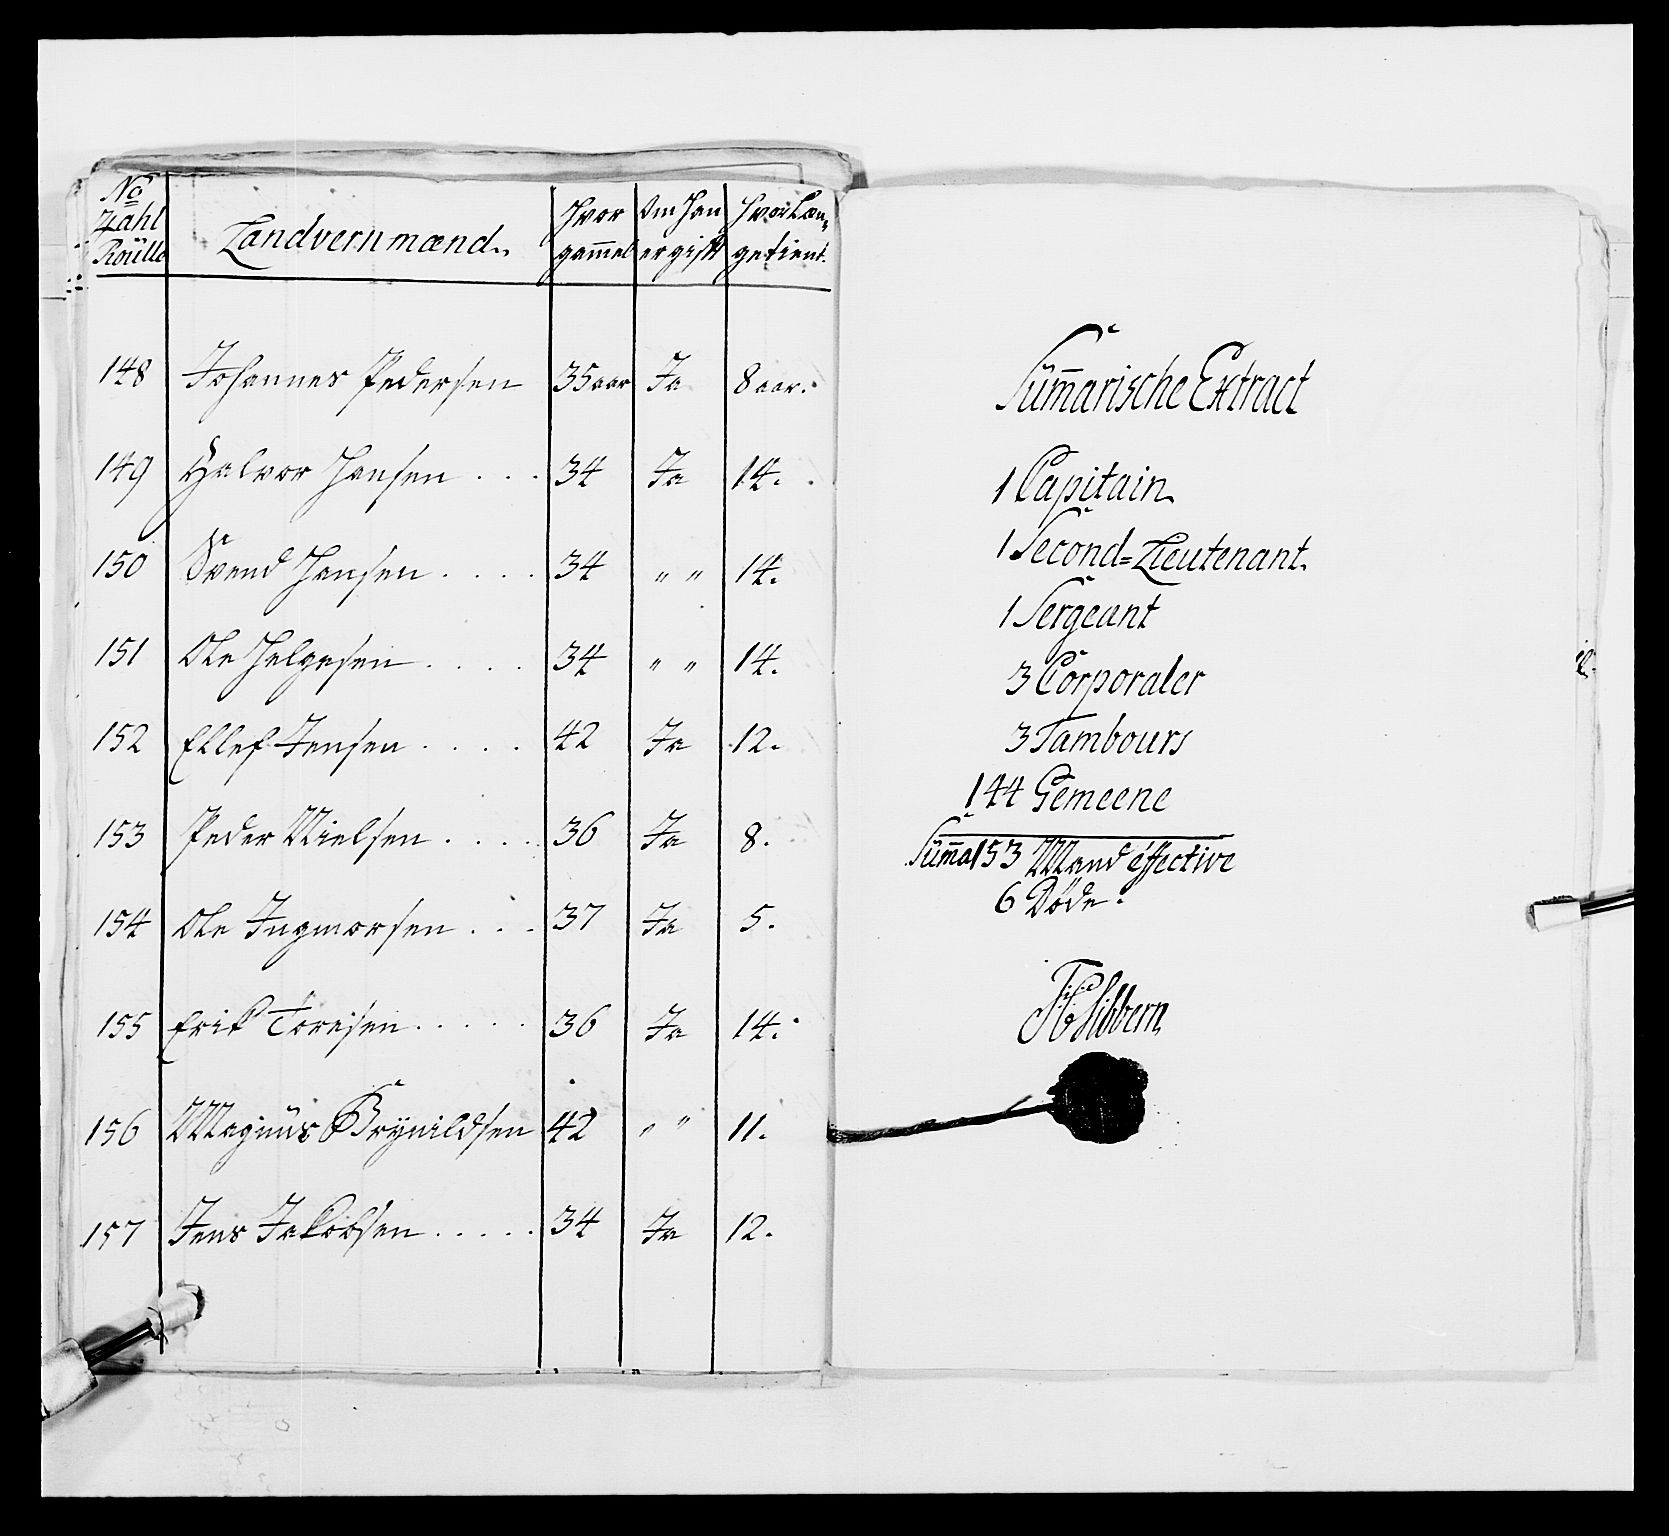 No Zahl Roülle | Landvernmænd. | Hvor gam̄el | Om Han er gift | Hvor Længe tient.
148 Johannes Pedersen 35 aar Ja 8 aar.
149 Halvor Hansen . . . 34 Ja 14.
150 Svend Hansen . . . . 34 " " 14.
151 Ole Helgesen . . . . 34 " " 14.
152 Ellef Jensen . . . . 42 Ja 12.
153 Peder Nielsen . . . . 36 Ja 8.
154 Ole Ingmorsen . . . 37 Ja 5.
155 Erik Toreisen . . . . . 36 Ja 14.
156 Magnüs Brÿnildsen 42 " " 11.
157 Jens Jakobsen . . . . . 34 Ja 12.
Sum̄arische Extract
1 Capitain
1 Second=Lieutenant.
1 Sergeant
3 Corporaler
3 Tambours
144 Gemeene
Sum̄a 153 Mand effective
6 Döde.
Sibbern